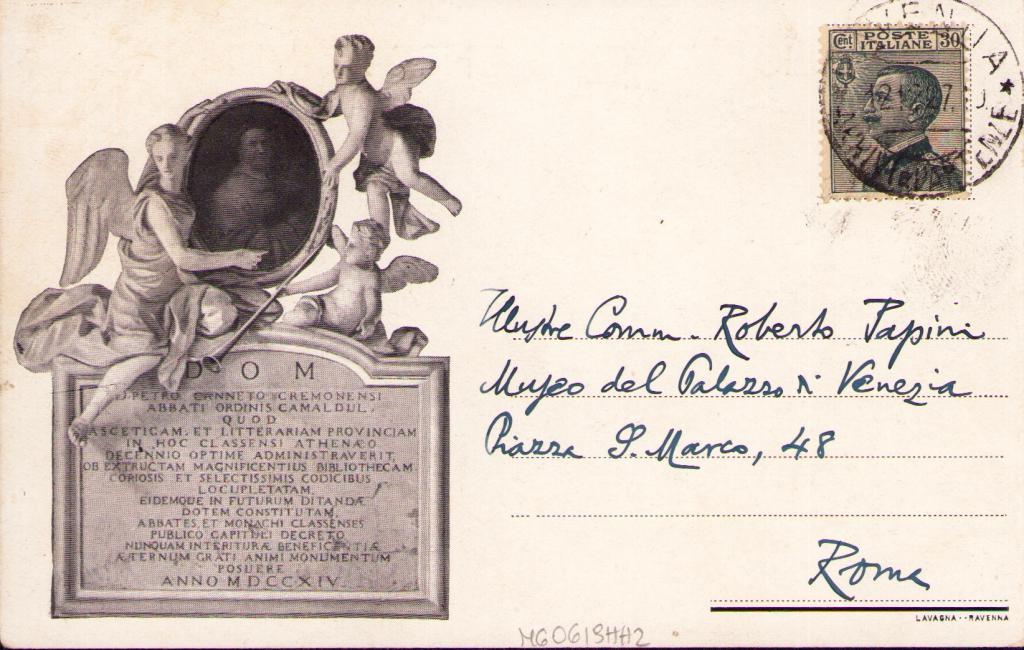 Cent POSTE ITALIANE 30
D O M
PETRO CANNETO CREMONENSI
ABBATI ORDINIS CAMALDUL.
QUOD
ASCETICAM. ET LITTERARIAM PROVINCIAM
IN HOC CLASSENSI ATHENÆO
DECENNIO OPTIME ADMINISTRAVERIT
OB EXTRUCTAM MAGNIFICENTIUS BIBLIOTHECAM
COPIOSIS ET SELECTISSIMIS CODICIBUS
LOCUPLETATAM,
EIDEMQUE IN FUTURUM DITANDÆ
DOTEM CONSTITUTAM,
ABBATES ET MONACHI CLASSENSES
PUBLICO CAPITULI DECRETO
NUNQUAM INTERITURÆ BENEFICENTIÆ
ÆTERNUM GRATI ANIMI MONUMENTUM
POSUERE
ANNO MDCCXIV.
Illustre Comm. Roberto Papini
Museo del Palazzo di Venezia
Piazza S. Marco, 48
Roma
LAVAGNA - RAVENNA
MG0619HH2